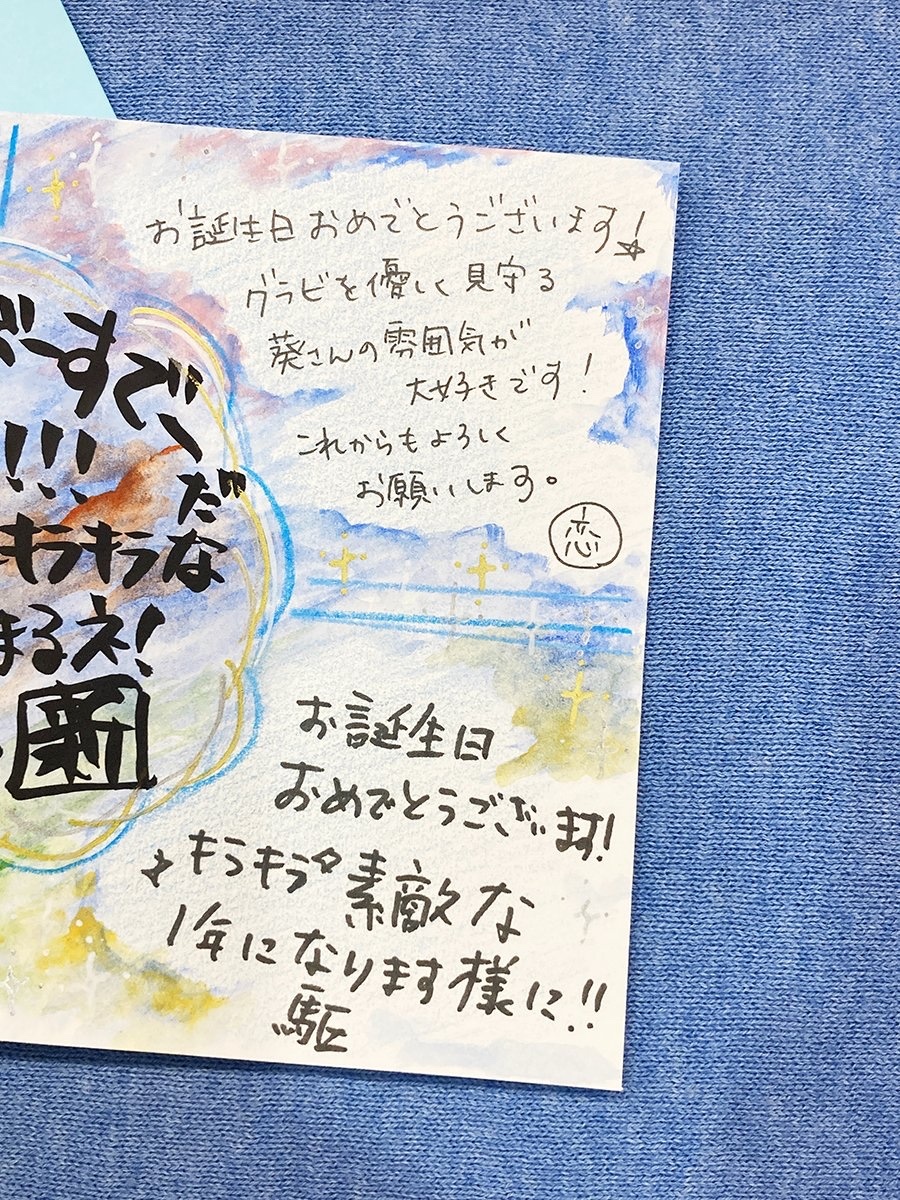 お誕生日おめでとうございます!
グラビを優しく見守る
葵さんの雰囲気が
大好きです!
これからもよろしく
お願いします。
恋
ばーすでー
!!! だな
キラキラ
まるえ!
新
お誕生日
おめでとうございます!
キラキラ 素敵な
1年になります様に!!
駆